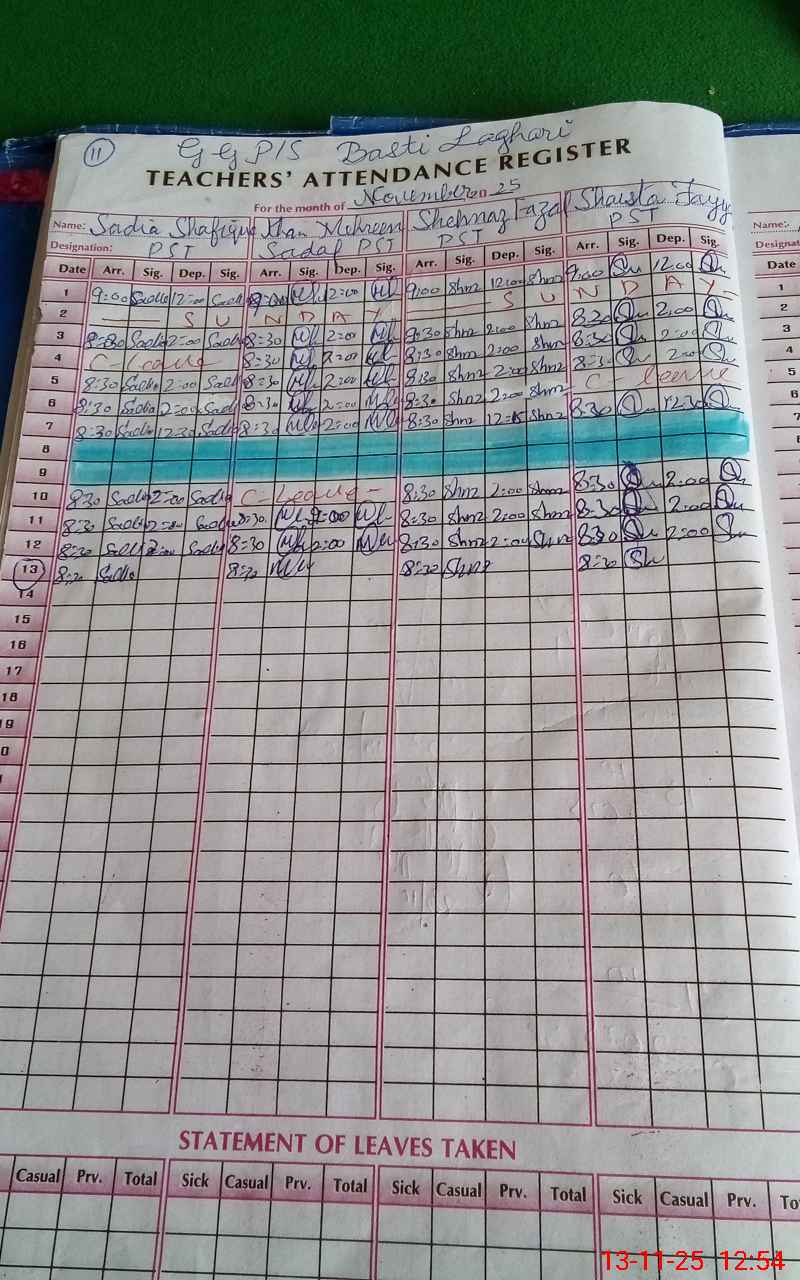 11
G G P/S Basti Laghari
TEACHERS' ATTENDANCE REGISTER
For the month of November 2025
Name: Sadia Shafique Khan Mehreen Shehnaz Fazal Shaista Fayy
Designation: PST Sadaf PST PST PST
Date Arr. Sig. Dep. Sig. Arr. Sig. Dep. Sig. Arr. Sig. Dep. Sig. Arr. Sig. Dep. Sig. Date
1 9:00 Sadia 12:00 Sadia 9:00 12:00 9:00 Shnz 12:00 Shnz 9:00 12:00
2 S U N D A Y S U N D A Y
3 8:30 Sadia 2:00 Sadia 8:30 2:00 8:30 Shnz 2:00 Shnz 8:30 2:00
4 C-Leave 8:30 2:00 8:30 Shnz 2:00 Shnz 8:30 2:00
5 8:30 Sadia 2:00 Sadia 8:30 2:00 8:30 Shnz 2:00 Shnz 8:30 2:00
6 8:30 Sadia 2:00 Sadia 8:30 2:00 8:30 Shnz 2:00 Shnz C-leave
7 8:30 Sadia 12:30 Sadia 8:30 2:00 8:30 Shnz 12:15 Shnz 8:30 12:30
8
9
10 8:30 Sadia 2:00 Sadia C-Leave- 8:30 Shnz 2:00 Shnz 8:30 2:00
11 8:30 Sadia 2:00 Sadia 8:30 2:00 8:30 Shnz 2:00 Shnz 8:30 2:00
12 8:30 Sadia 2:00 Sadia 8:30 2:00 8:30 Shnz 2:00 Shnz 8:30 2:00
13 8:30 Sadia 8:30 8:30 Shnz 8:30
14
15
16
17
18
19
STATEMENT OF LEAVES TAKEN
Casual Prv. Total Sick Casual Prv. Total Sick Casual Prv. Total Sick Casual Prv.
13-11-25 12:54